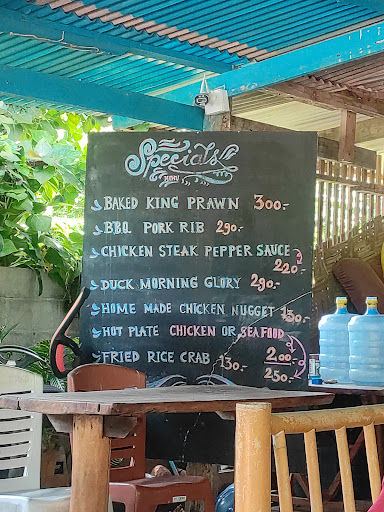 Specials
MENU
BAKED KING PRAWN 300.-
B.B.Q. PORK RIB 290.-
CHICKEN STEAK PEPPER SAUCE
220.-
DUCK MORNING GLORY 290.-
HOME MADE CHICKEN NUGGET 130.-
HOT PLATE CHICKEN OR SEAFOOD
200.-
250.-
FRIED RICE CRAB 130.-